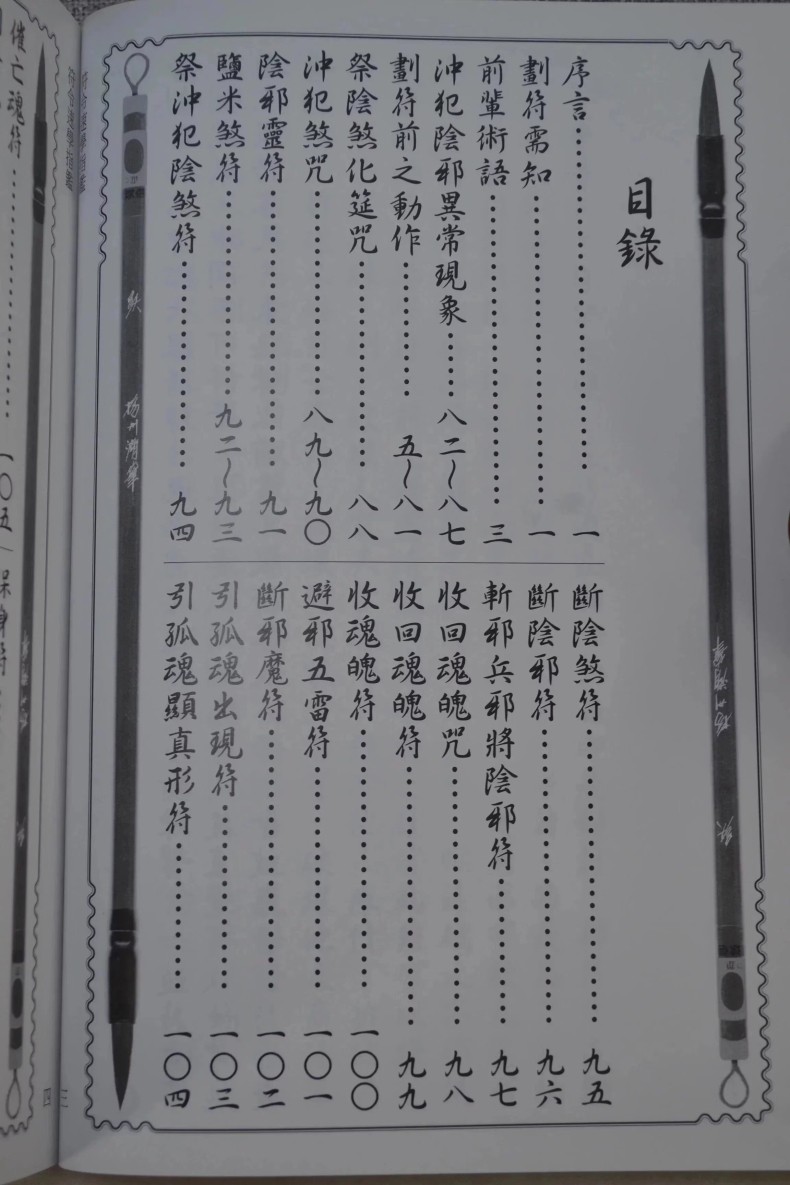 目錄
序言……………………一
劃符需知……………………一
前輩術語……………………三
沖犯陰邪異常現象……八二～八七
劃符前之動作…………五～八一
祭陰煞化筵咒……………………八八
沖犯煞咒…………………八九～九〇
陰邪靈符……………………九一
鹽米煞符…………………九二～九三
祭沖犯陰煞符……………………九四
斷陰煞符……………………九五
斷陰邪符……………………九六
斬邪兵邪將陰邪符…………九七
收回魂魄咒……………………九八
收回魂魄符……………………九九
收魂魄符……………………一〇〇
避邪五雷符……………………一〇一
斷邪魔符……………………一〇二
引孤魂出現符………………一〇三
引孤魂顯真形符……………一〇四
三
催亡魂符……………………一〇五
四